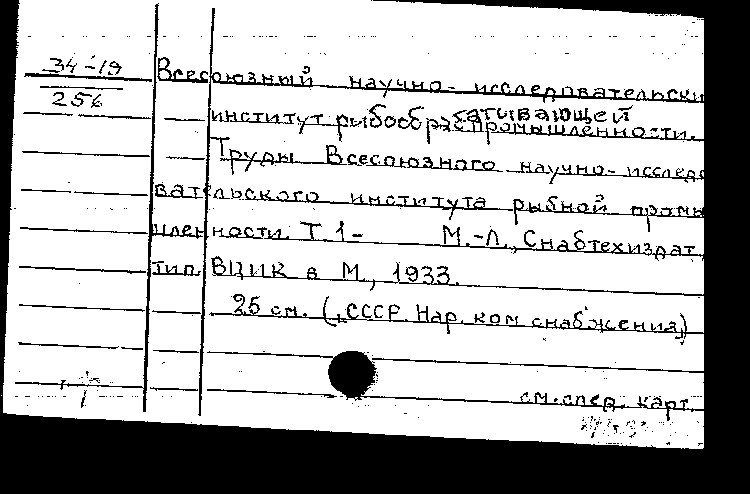 34-19
256
Всесоюзный научно-исследовательски
институт рыбообрабатывающей
промышленности.
Труды Всесоюзного научно-исследо
вательского института рыбной промы
шленности. Т. 1- М.-Л., Снабтехиздат,
тип. ВЦИК в М., 1933.
25 см. (СССР. Нар. ком снабжения)
см. след. карт.